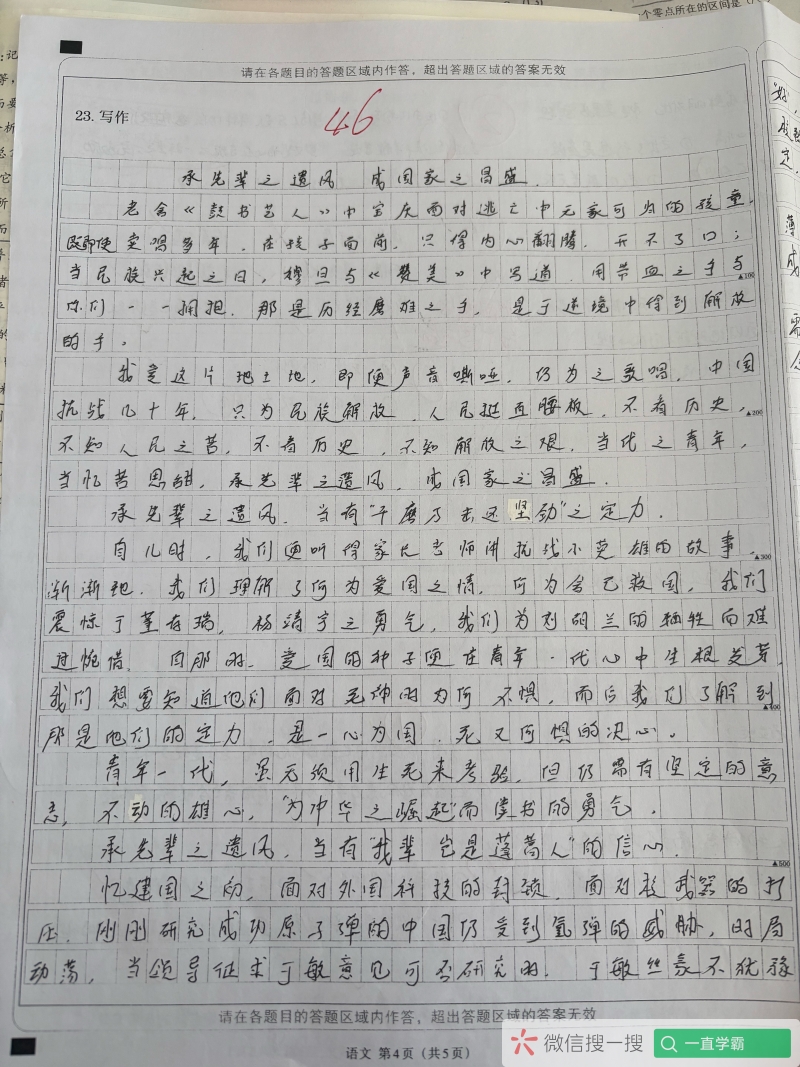 个零点所在的区间是
请在各题目的答题区域内作答，超出答题区域的答案无效
23. 写作
46
承先辈之遗风 成国家之昌盛
老舍《鼓书艺人》中宝庆面对逃亡中无家可归的孩童，
既即使卖唱多年，在孩子面前，只得内心翻腾，开不了口；
当民族兴起之日，穆旦与《赞美》中写道，用带血之手与
你们一一拥抱，那是历经磨难之手，是于逆境中得到解放
的手。
我爱这片地土地，即便声音嘶哑，仍为之歌唱，中国
抗战几十年，只为民族解放，人民挺直腰板，不看历史，
不知人民之苦，不看历史，不知解放之艰，当代之青年，
当忆苦思甜，承先辈之遗风，成国家之昌盛。
承先辈之遗风，当有“千磨万击还坚劲”之定力。
自儿时，我们便听得家长老师讲抗战小英雄的故事，
渐渐地，我们理解了何为爱国之情，何为舍己救国，我们
震惊于董存瑞，杨靖宇之勇气，我们为刘胡兰的牺牲而难
过惋惜，自那时，爱国的种子便在青年一代心中生根发芽，
我们想要知道他们面对死神时为何不惧，而后我们了解到
那是他们的定力，是一心为国，死又何惧的决心。
青年一代，虽无须用生死来考验，但仍需有坚定的意
志，不动的雄心，“为中华之崛起”而读书的勇气。
承先辈之遗风，当有“我辈岂是蓬蒿人”的信心。
忆建国之初，面对外国科技的封锁，面对核武器的打
压，刚刚研究成功原子弹的中国仍受到氢弹的威胁，时局
动荡，当领导征求于敏意见可否研究时，于敏丝豪不犹豫
▲100
▲200
▲300
▲400
▲500
请在各题目的答题区域内作答，超出答题区域的答案无效
语文 第4页（共5页）
微信搜一搜
一直学霸